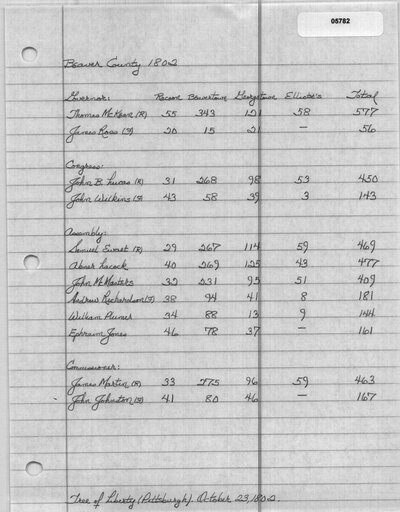 05782
Beaver County 1802
Governor: Racoon Beavertown Georgetown Elliott's Total
Thomas McKean (R) 55 343 121 58 577
James Ross (F) 20 15 21 — 56
Congress:
John B. Lucas (R) 31 268 98 53 450
John Wilkins (F) 43 58 39 3 143
Assembly:
Samuel Ewart (R) 29 267 114 59 469
Abner Lacock 40 269 125 43 477
John McMasters 32 231 95 51 409
Andrew Richardson (F) 38 94 41 8 181
William Plumer 34 88 13 9 144
Ephraim Jones 46 78 37 — 161
Commissioner:
James Martin (R) 33 275 96 59 463
John Johnston (F) 41 80 46 — 167
Tree of Liberty (Pittsburgh). October 23, 1802.